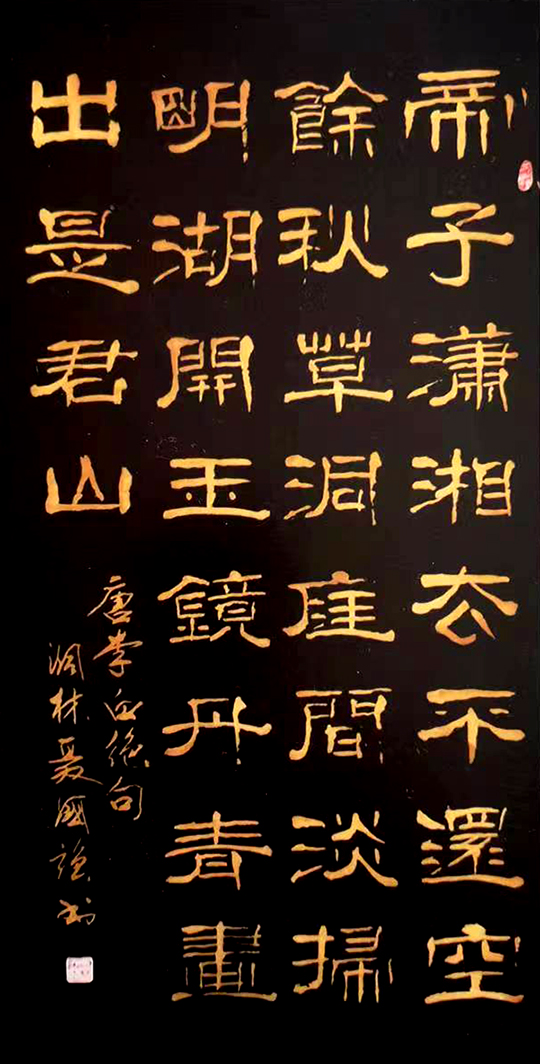 帝子瀟湘去不還空
餘秋草洞庭間淡掃
明湖開玉鏡丹青畫
出是君山
唐李白絕句
林國強书